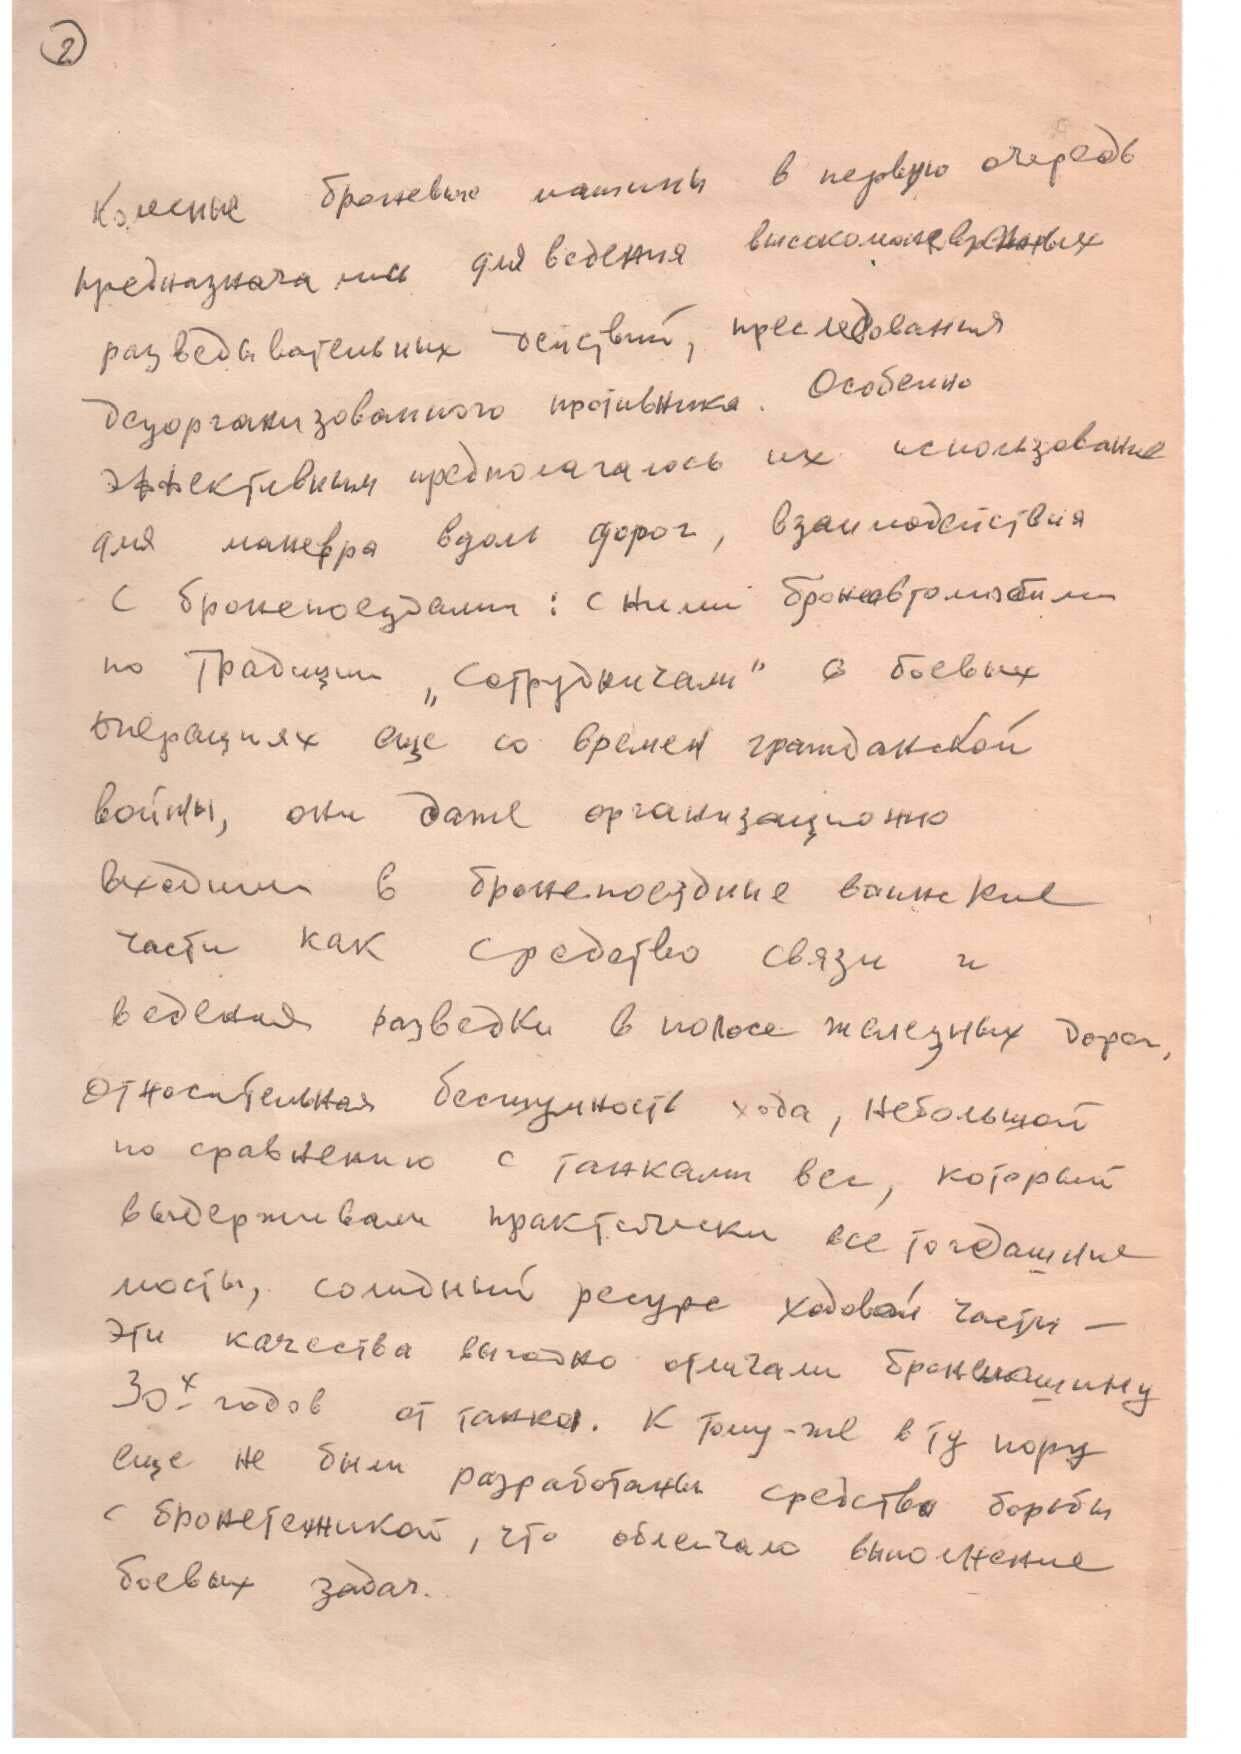 2
Колесные броневые машины в первую очередь
предназначались для ведения высокоманевренных
разведывательных действий, преследования
дезорганизованного противника. Особенно
эффективным предполагалось их использование
для маневра вдоль дорог, взаимодействия
с бронепоездами: с ними бронеавтомобили
по традиции „сотрудничали" в боевых
операциях еще со времен гражданской
войны, они даже организационно
входили в бронепоездные воинские
части как средство связи и
ведения разведки в полосе железных дорог.
Относительная бесшумность хода, небольшой
по сравнению с танками вес, который
выдерживали практически все тогдашние
мосты, солидный ресурс ходовой части —
эти качества выгодно отличали бронемашину
30х годов от танка. К тому-же в ту пору
еще не были разработаны средства борьбы
с бронетехникой, что облегчало выполнение
боевых задач.